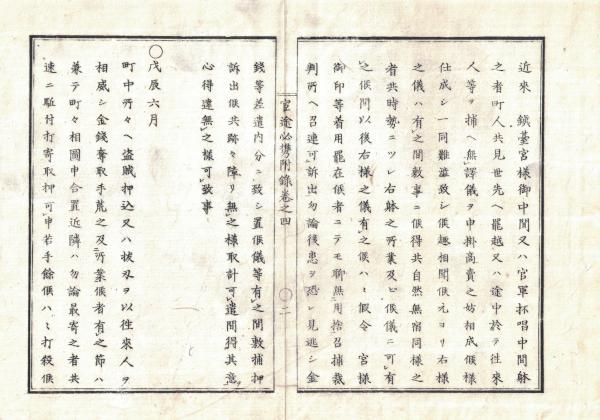 近來 鎮臺宮様御中間又ハ官軍抔唱中間躰
之者町人共見世先ヘ罷越又ハ途中於テ往來
人等ヲ捕ヘ無譯儀ヲ申掛商賣之妨相成候様
仕成シ一同難澁致シ候趣相聞候元ヨリ右様
之儀ハ有之間敷事ニ候得共自然無宿同様之
者共時勢ニツレ右躰之所業及ヒ候儀ニ可有
之候間以後右様之儀有之候ハヽ假令 宮様
御印等着用罷在候者ニテモ聊無用捨召捕裁
判所ヘ召連可訴出勿論後患ヲ恐レ見逃シ金
官途必携附録卷之四
〇二
錢等差遣内分ニ致シ置候儀等有之間敷捕押
訴出候共跡々障リ無之様取計可遣間得其意
心得違無之様可致事
〇戊辰六月
町中所々ヘ盗賊押込又ハ拔刄ヲ以往來人ヲ
相威シ金錢奪取手荒之及所業候者有之節ハ
兼テ町々相圖申合置近隣ハ勿論最寄之者共
速ニ駈付打寄取押可申若手餘候ハヽ打殺候